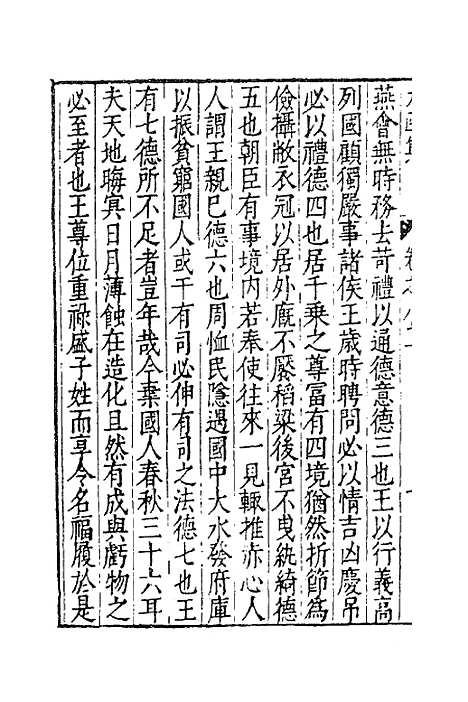 燕會無時務去苛禮以通德意德三也王以行義高
列國顧獨嚴事諸侯王歲時聘問必以情吉凶慶弔
必以禮德四也居千乗之尊富有四境猶然折節為
儉攝敝衣冠以居外廐不饜稻粱後宮不曳紈綺德
五也朝臣有事境内若奉使往來一見輙推赤心人
人謂王親已德六也周恤民隱遇國中大水發府庫
以振貧窮國人或干有司必伸有司之法德七也王
有七德所不足者豈年哉今棄國人春秋三十六耳
夫天地晦㝠日月薄蝕在造化且然有成與虧物之
必至者也王尊位重禄盛子姓而享令名福履於是